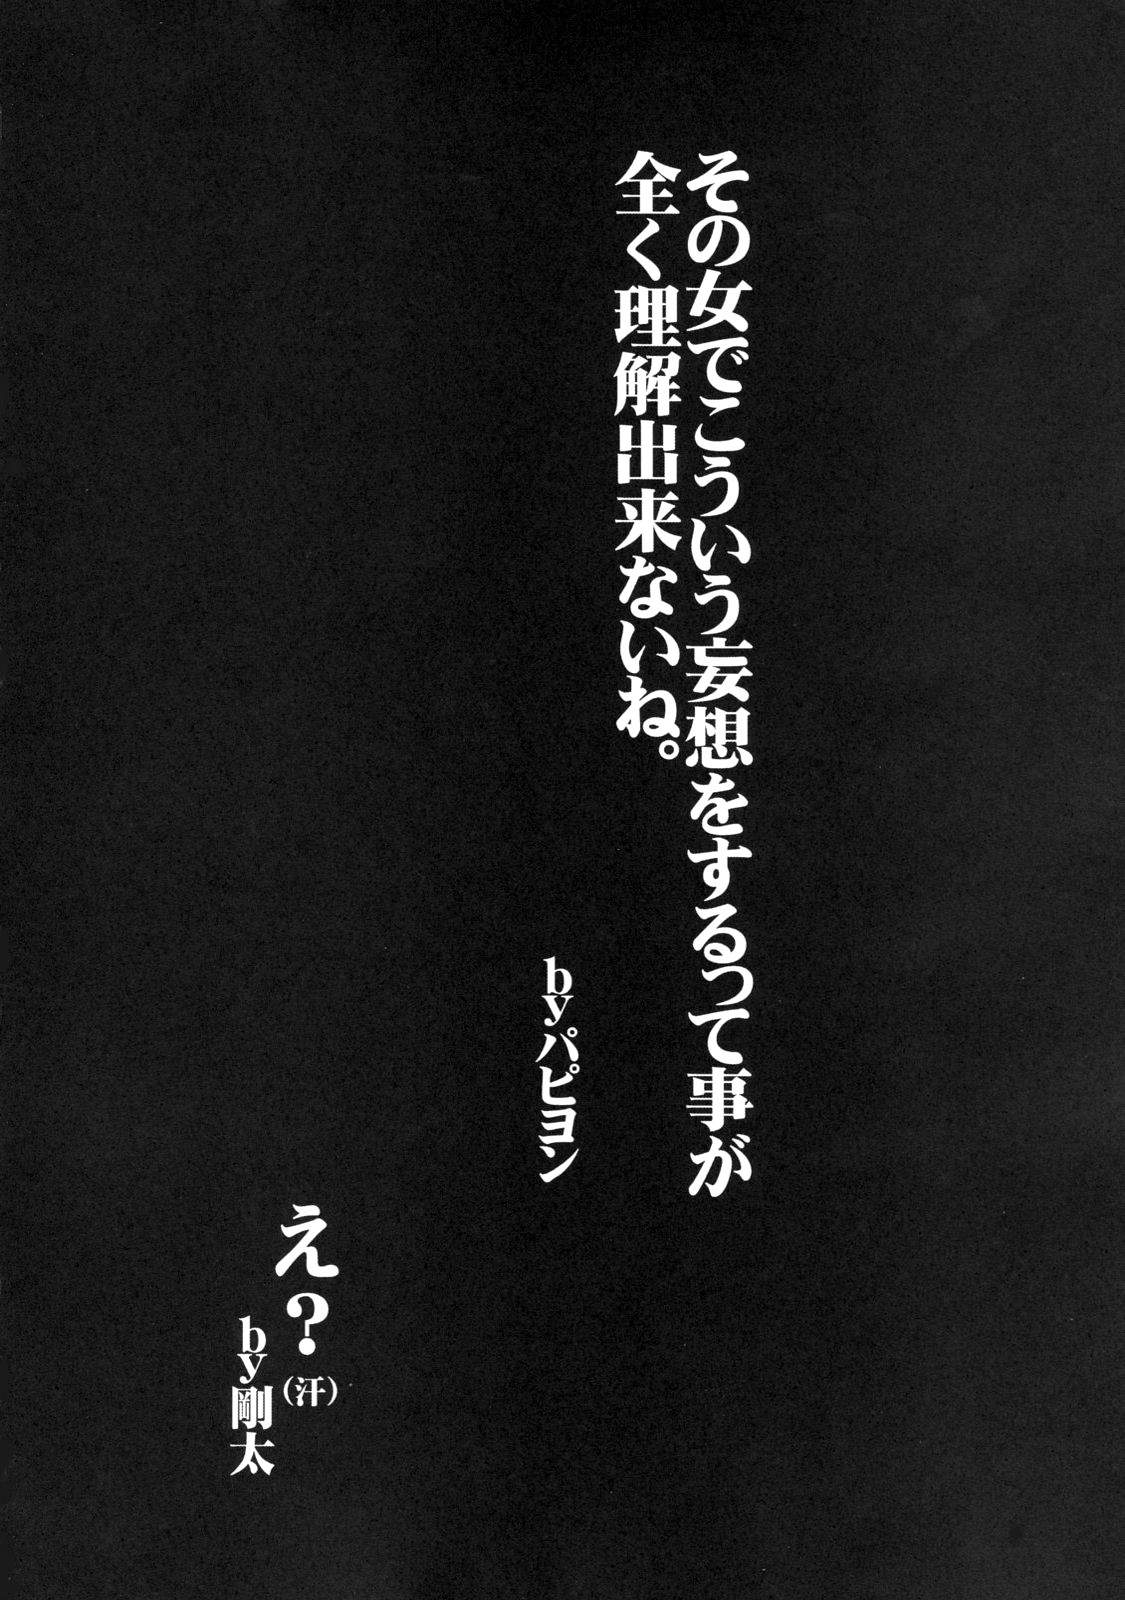 その女でこういう妄想をするって事が
全く理解出来ないね。
byパピヨン
え？(汗)
by剛太